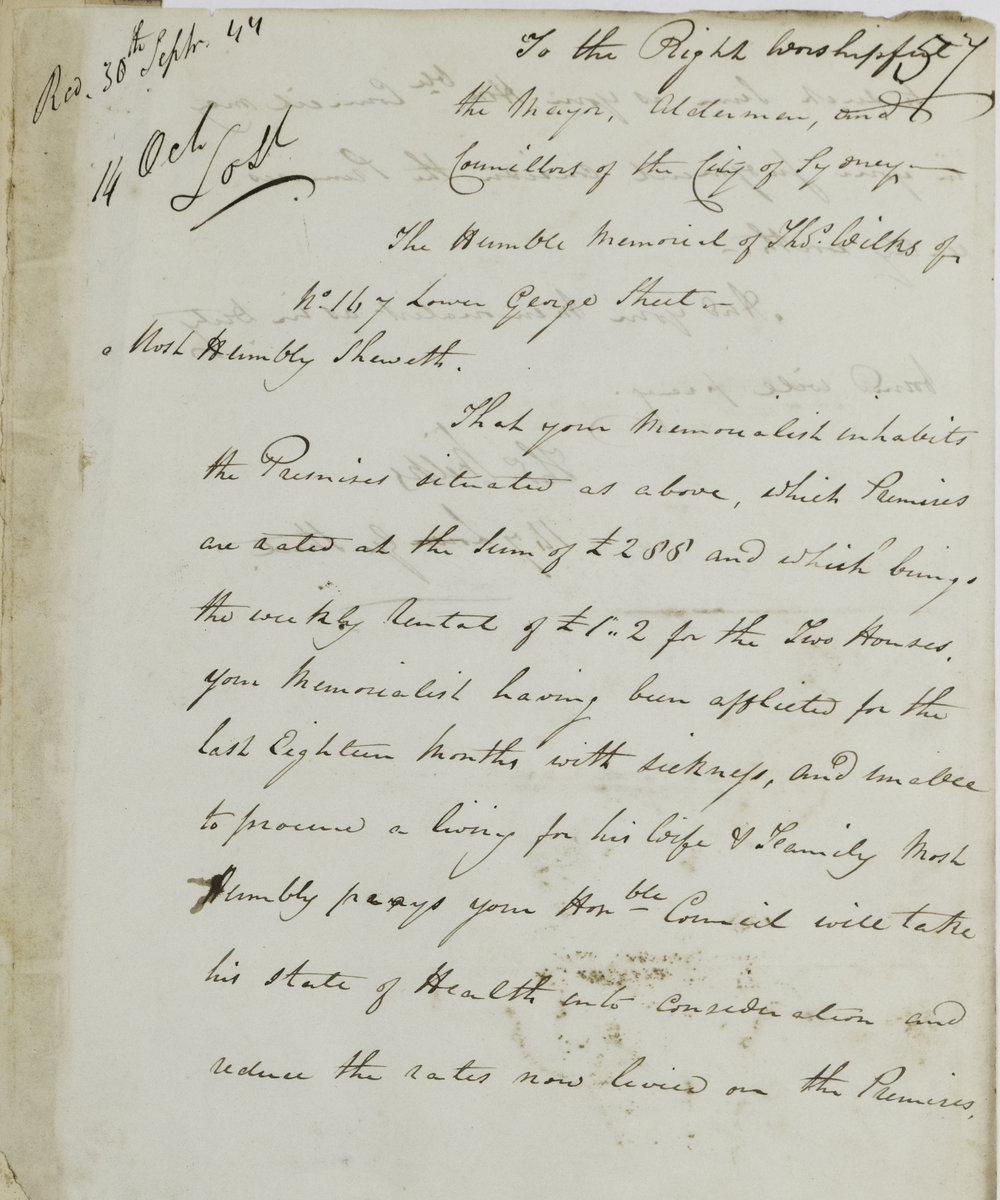 Recd. 30th Septr. 44
57
14 Oct
Lost
To the Right Worshipful
the Mayor, Alderman, and
Councillors of the City of Sydney
The Humble Memorial of Thos. Wilks of
No. 147 Lower George Street
Most Humbly Sheweth.
That your Memorialist inhabits
the Premises situated as above, which Premises
are rated at the Sum of £288 and which brings
the weekly Rental of £1..2 for the Two Houses.
your Memorialist having been afflicted for the
last Eighteen Months with sickness, and unable
to procure a living for his Wife & Family Most
Humbly prays your Honble Council will take
his state of Health into consideration and
reduce the rates now levied on the Premises.